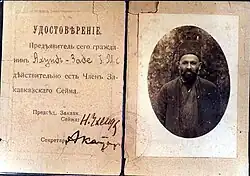 УДОСТОВѢРЕНІЕ.
Предъявитель сего гражда-
нинъ Ахундъ-Заде
дѣйствительно есть Членъ За-
кавказскаго Сейма.
Предсѣд. Закавк.
Сейма:
Секретарь